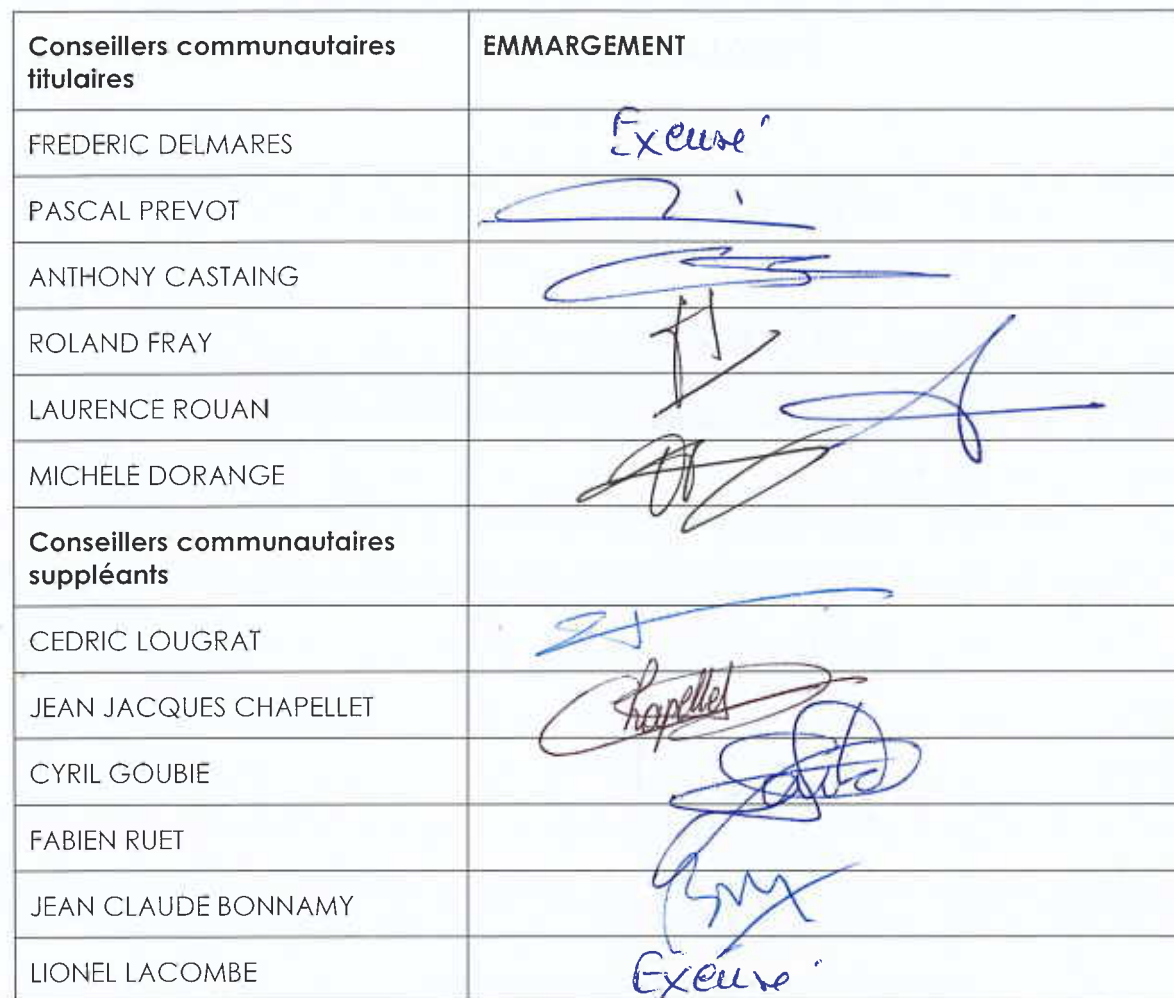 Conseillers communautaires EMMARGEMENT
titulaires
FREDERIC DELMARES Excusé
PASCAL PREVOT
ANTHONY CASTAING
ROLAND FRAY
LAURENCE ROUAN
MICHELE DORANGE
Conseillers communautaires
suppléants
CEDRIC LOUGRAT
JEAN JACQUES CHAPELLET Chapellet
CYRIL GOUBIE
FABIEN RUET
JEAN CLAUDE BONNAMY
LIONEL LACOMBE Excusé